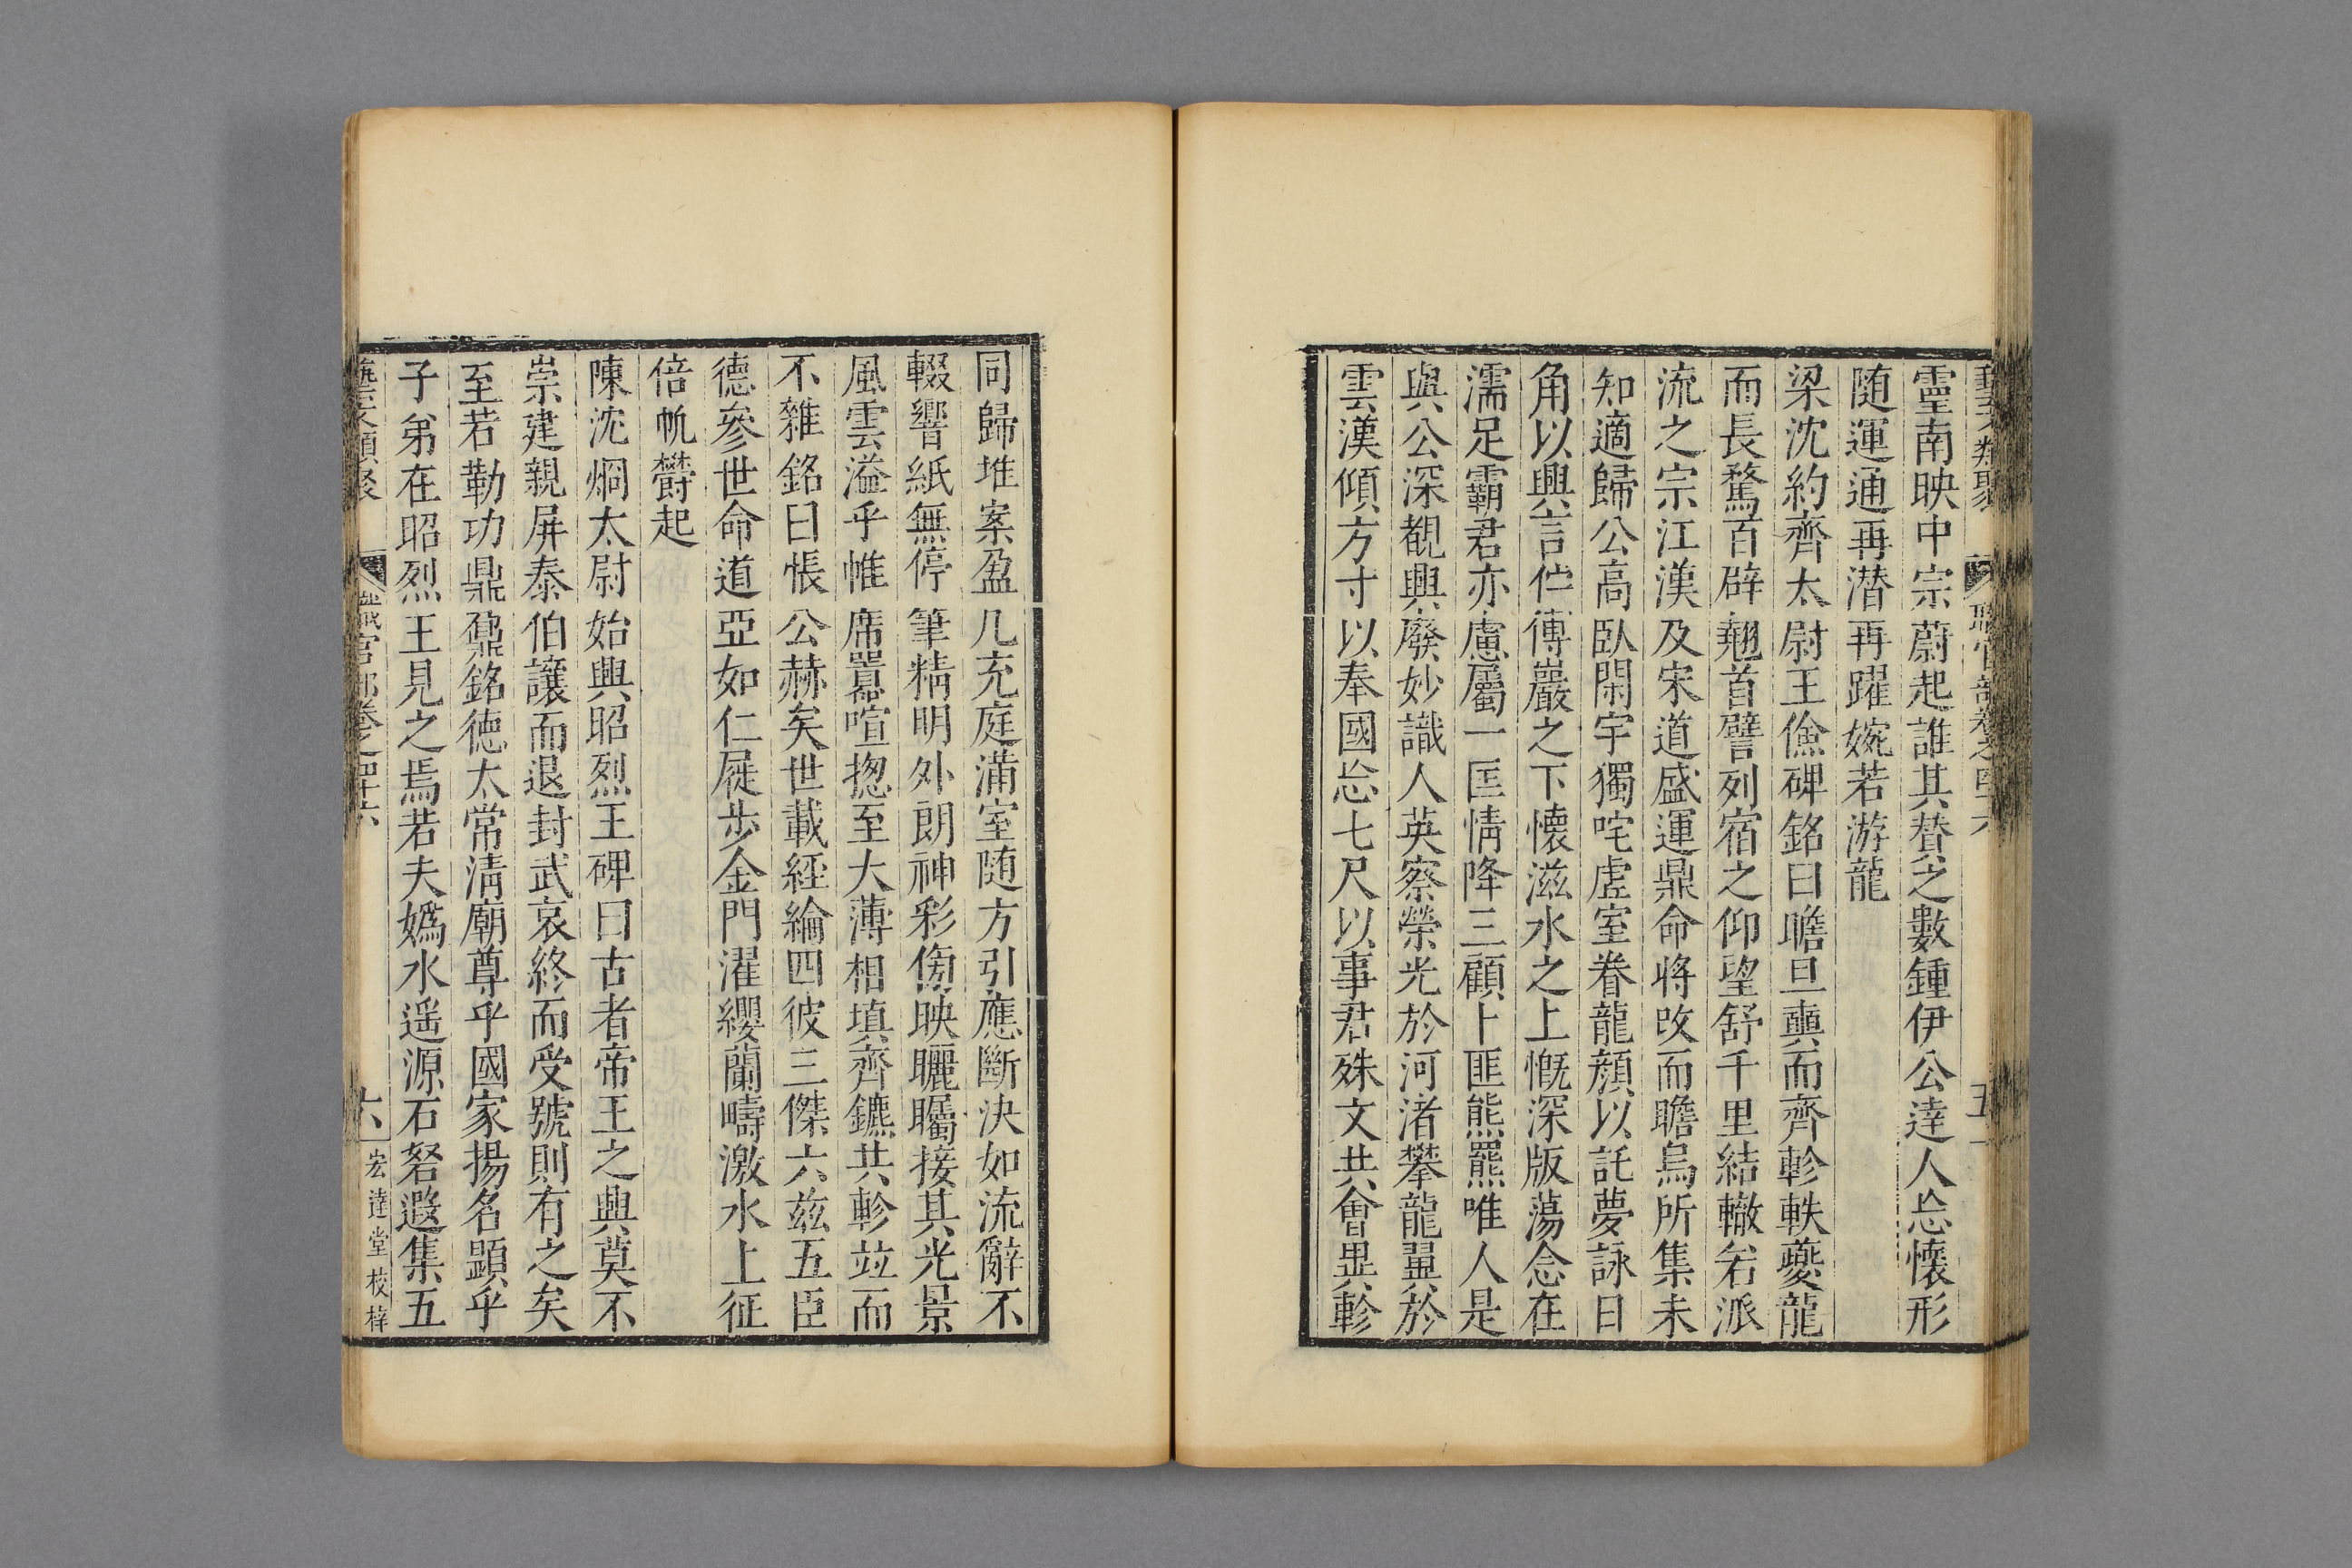 藝文類聚 職官部卷之四十六 五
靈南映中宗蔚起誰其贊之數鍾伊公達人忘懷形
随運通再潜再躍婉若游龍
梁沈約齊太尉王儉碑銘曰瞻旦奭而齊軫軼夔龍
而長騖百辟翹首譬列宿之仰望舒千里結轍若派
流之宗江漢及宋道盛運鼎命將改而瞻烏所集未
知適歸公高臥閑宇獨咤虛室眷龍顏以託夢詠日
角以興言佇傅巖之下懷滋水之上慨深版蕩念在
濡足霸君亦慮屬一匡情降三顧卜匪熊羆唯人是
與公深覩興廢妙識人英察榮光於河渚攀龍翼於
雲漢傾方寸以奉國忘七尺以事君殊文共會異軫
同歸堆案盈几充庭滿室随方引應斷決如流辭不
輟響紙無停筆精明外朗神彩傍映曬矚接其光景
風雲溢乎帷席囂喧揔至大薄相填齊鑣共軫竝而
不雜銘曰悵公赫矣世載經綸四彼三傑六兹五臣
德參世命道亞如仁屣步金門濯纓蘭疇激水上征
倍帆欝起
陳沈炯太尉始興昭烈王碑曰古者帝王之興莫不
崇建親屏泰伯讓而退封武哀終而受號則有之矣
至若勒功鼎鼐銘徳太常清廟尊乎國家揚名顯乎
子弟在昭烈王見之焉若夫嬀水遥源石砮遐集五
藝文類聚 職官部卷之四十六 六 宏達堂校梓